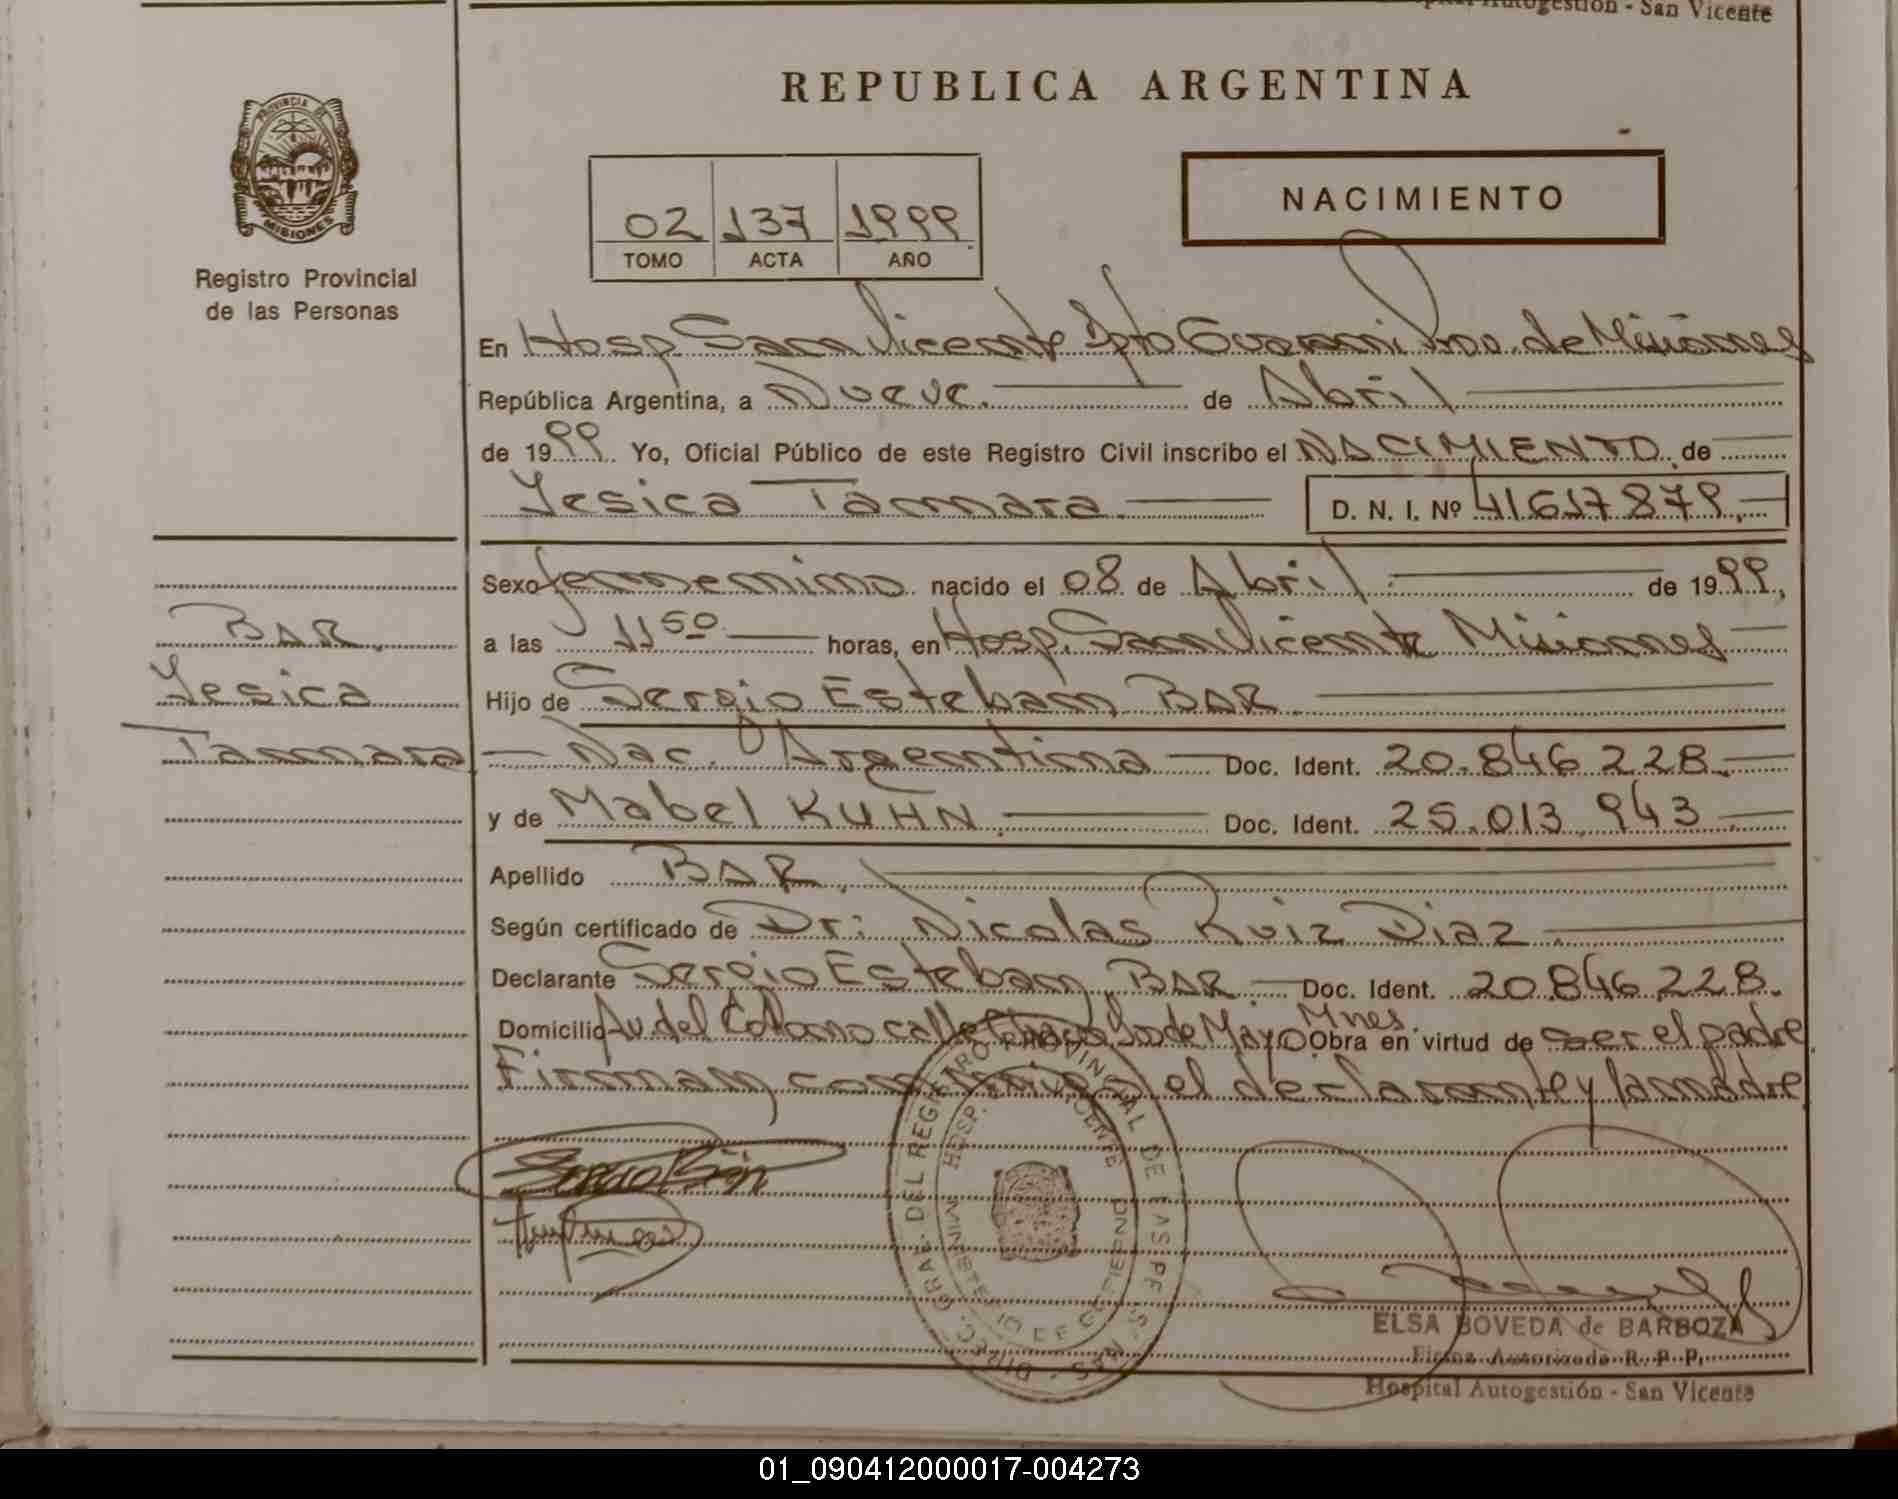 Hospital Autogestión - San Vicente
REPUBLICA ARGENTINA
PROVINCIA DE
MISIONES
Registro Provincial
de las Personas
02 137 1999
TOMO ACTA AÑO
NACIMIENTO
En Hosp. San Vicente Dpto Guarani Pro. de Misiones
República Argentina, a Nueve. de Abril
de 1999 Yo, Oficial Público de este Registro Civil inscribo el NACIMIENTO de
Yesica Tamara. D. N. I. Nº 41617879.
Sexo femenino nacido el 08 de Abril. de 1999,
a las 11 50 horas, en Hosp. San Vicente Misiones
Hijo de Sergio Esteban BAR
Nac. Argentina Doc. Ident. 20.846 228.
y de Mabel KUHN. Doc. Ident. 25.013.943
Apellido BAR.
Según certificado de Dr: Nicolas Ruiz Diaz
Declarante Sergio Esteban BAR. Doc. Ident. 20846228.
Domicilio Av. del calle de Mayo Mnes. Obra en virtud de ser el padre
Firman el declarante y la madre
BAR.
Yesica
Tamara
DIREC. GRAL. DEL REGISTRO PROVINCIAL DE LAS PERS. MNES.
HOSP. VICENTE
MINISTERIO DE GOBIERNO
ELSA BOVEDA de BARBOZA
Firma Autorizada R. P. P.
Hospital Autogestión - San Vicente
01_090412000017-004273